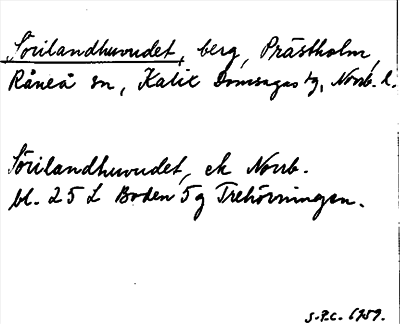 Sörilandhuvudet, berg, Prästholm,
Råneå sn, Kalix Domsagas tg, Norrb. l.
Sörilandhuvudet, ek Norrb.
bl. 25 L Boden 5g Trehörningen.
S.P.C. 6959.